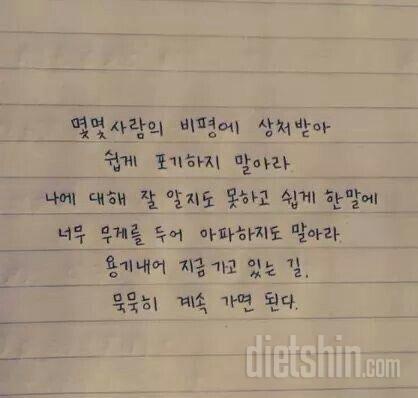 몇몇사람의 비평에 상처받아
쉽게 포기하지 말아라.
나에 대해 잘 알지도 못하고 쉽게 한말에
너무 무게를 두어 아파하지도 말아라.
용기내어 지금 가고 있는 길.
묵묵히 계속 가면 된다.
dietshin.com